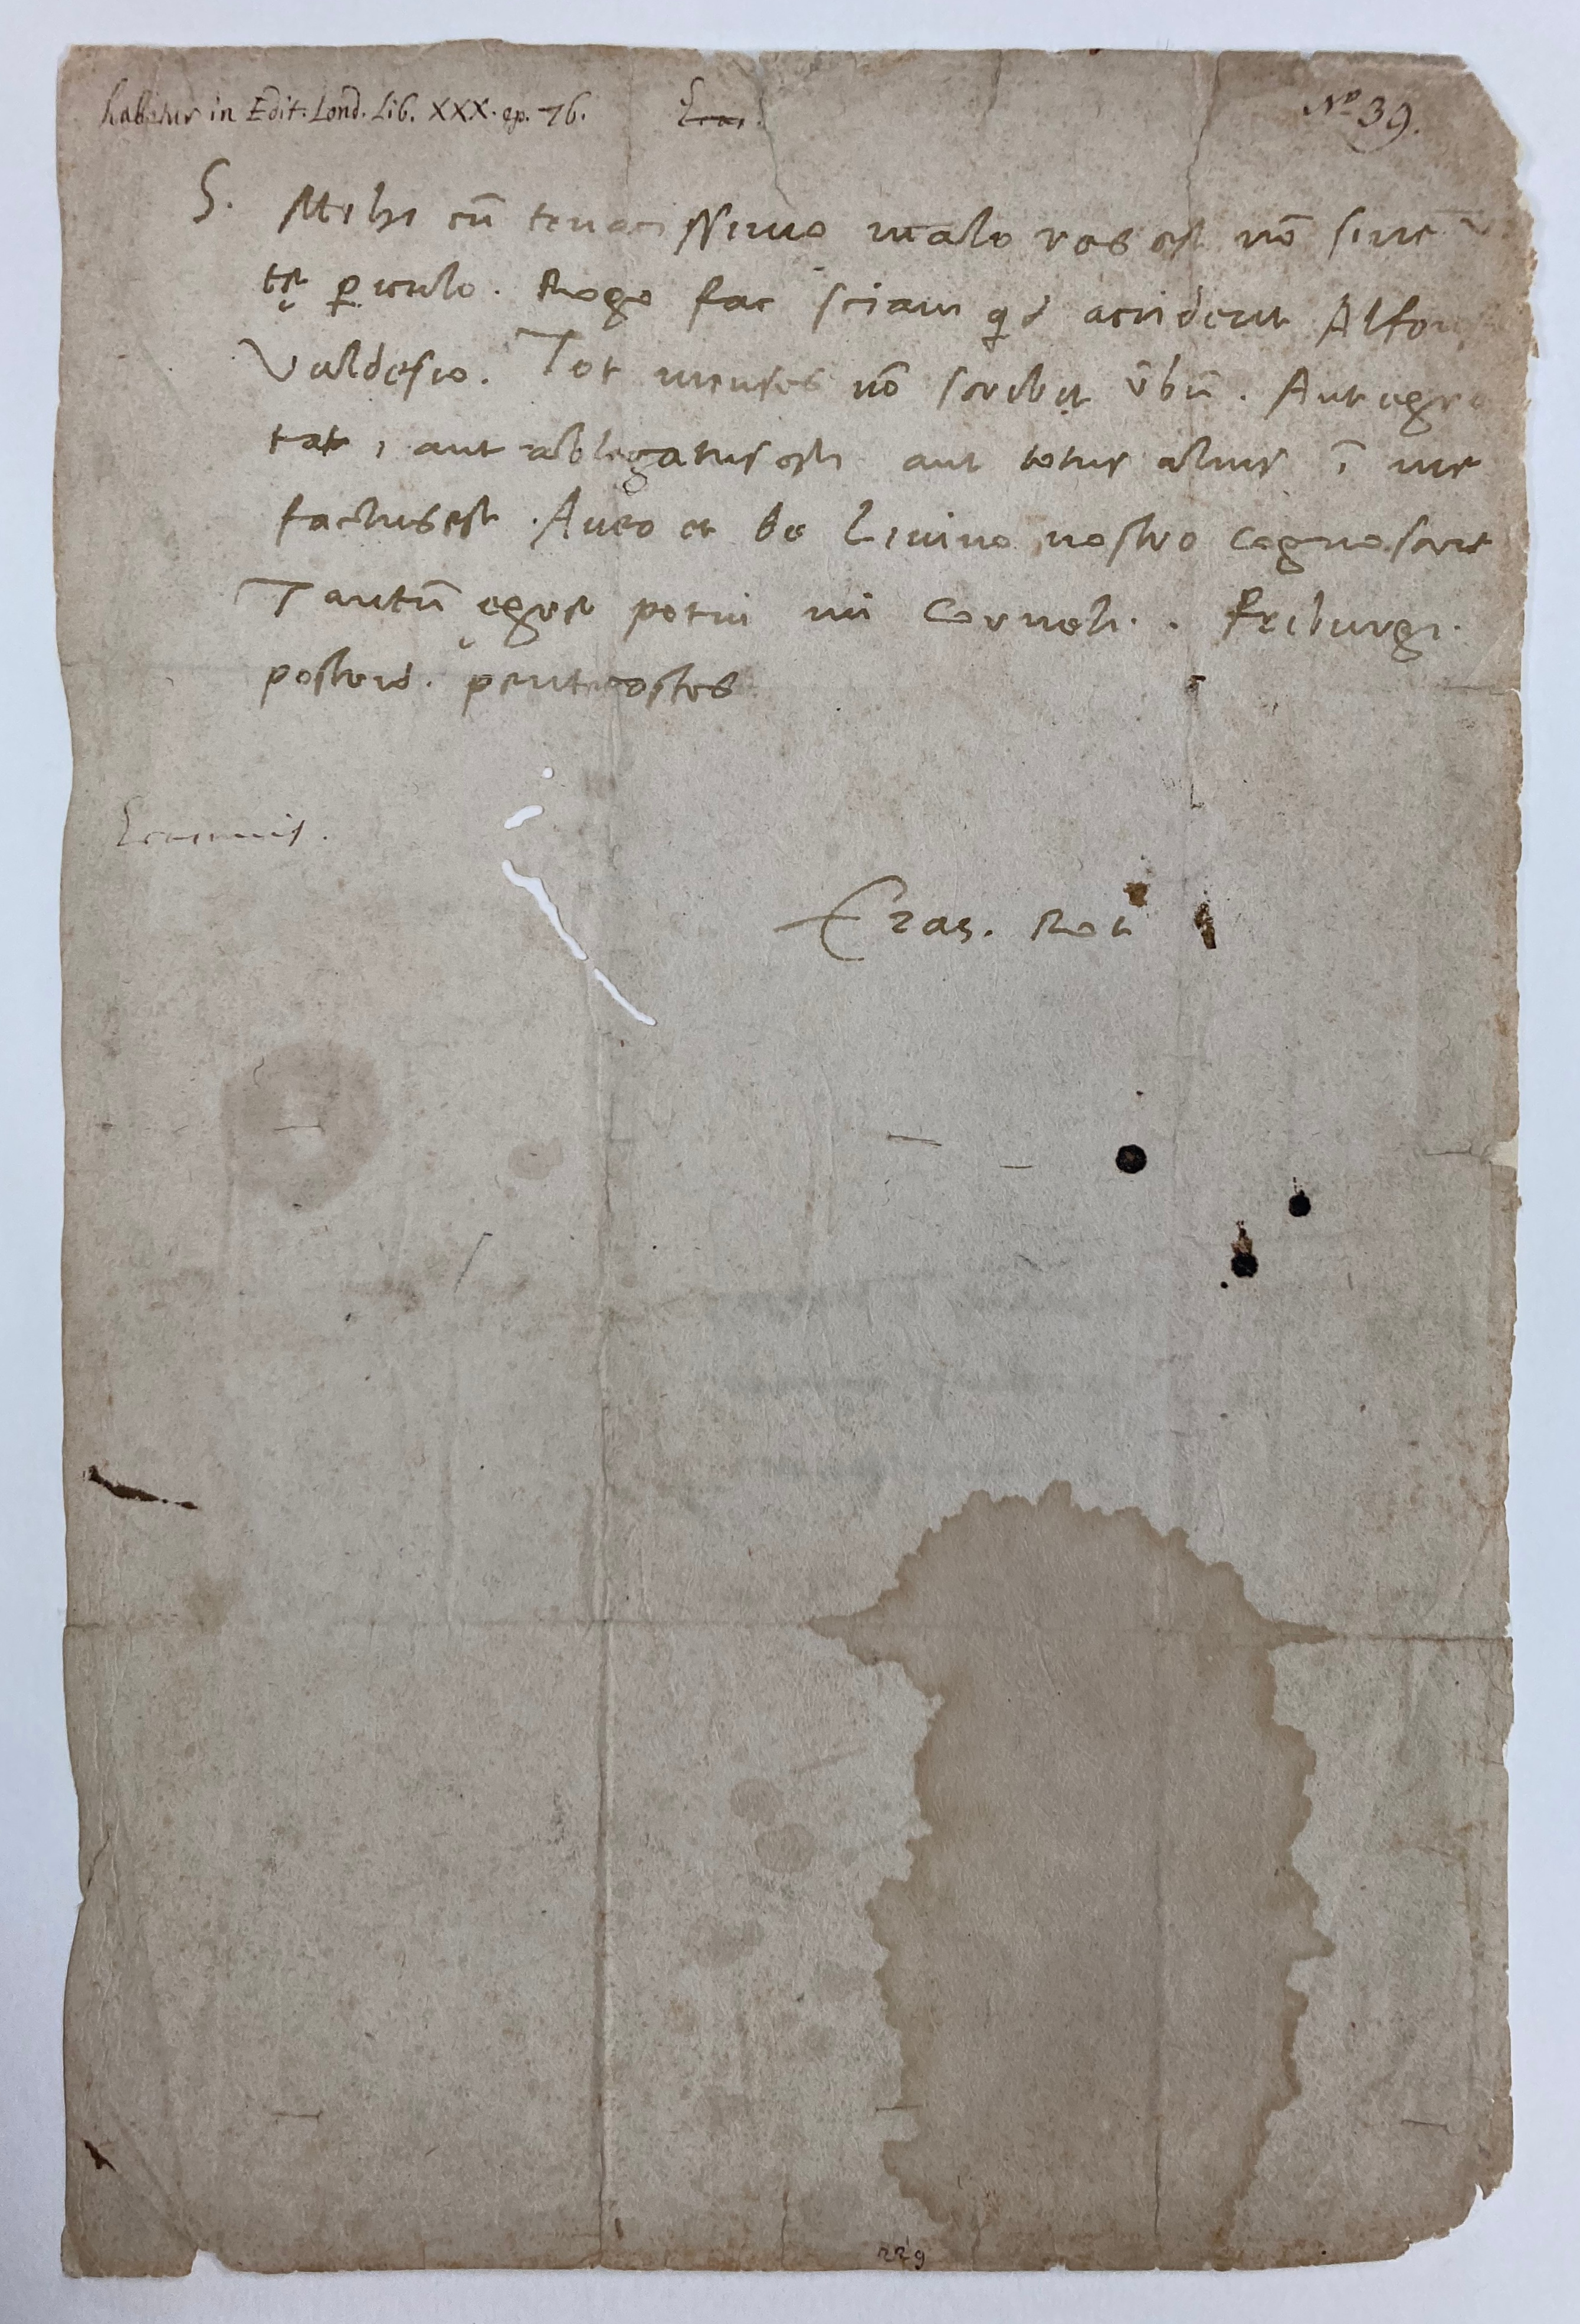 habetur in Edit. Lond. Lib. XXX. ep. 76. Eras. Nº 39.
S. Mihi cū tenacissimo malo res est nō sine
tę ꝑiculo. Rogo fac sciam qd acciderit Alfon
Valdesio. Tot menses nō scribit v̄bū. Aut egro
tat, aut ablegatus est, aut totus alius ī me
factus est. Aveo et de Livino nostro cognoscere
Tantū ęgre potui mi Corneli. Friburgi.
postrid. pentecostes
Erasmus.
Eras. Rot
229